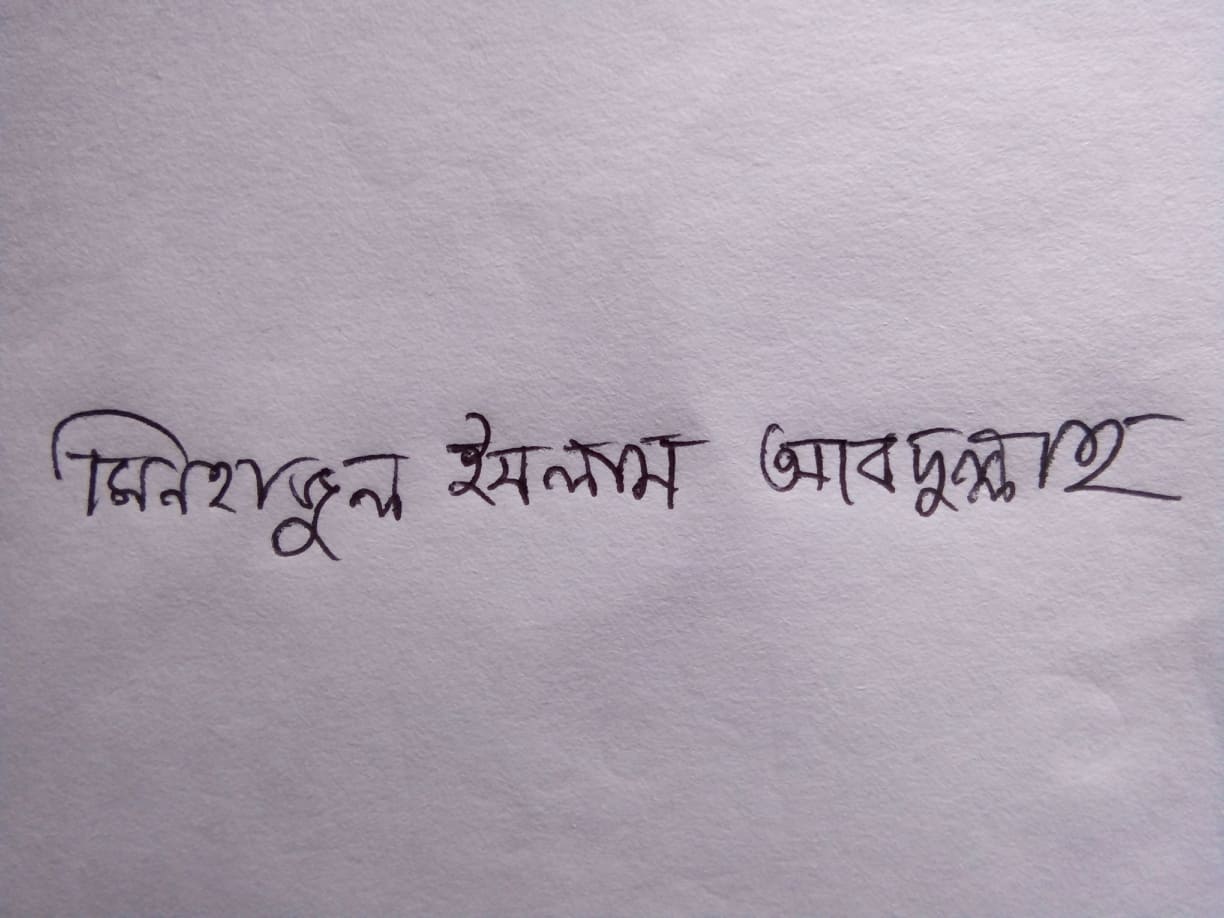 মিনহাজুল ইসলাম আবদুল্লাহ